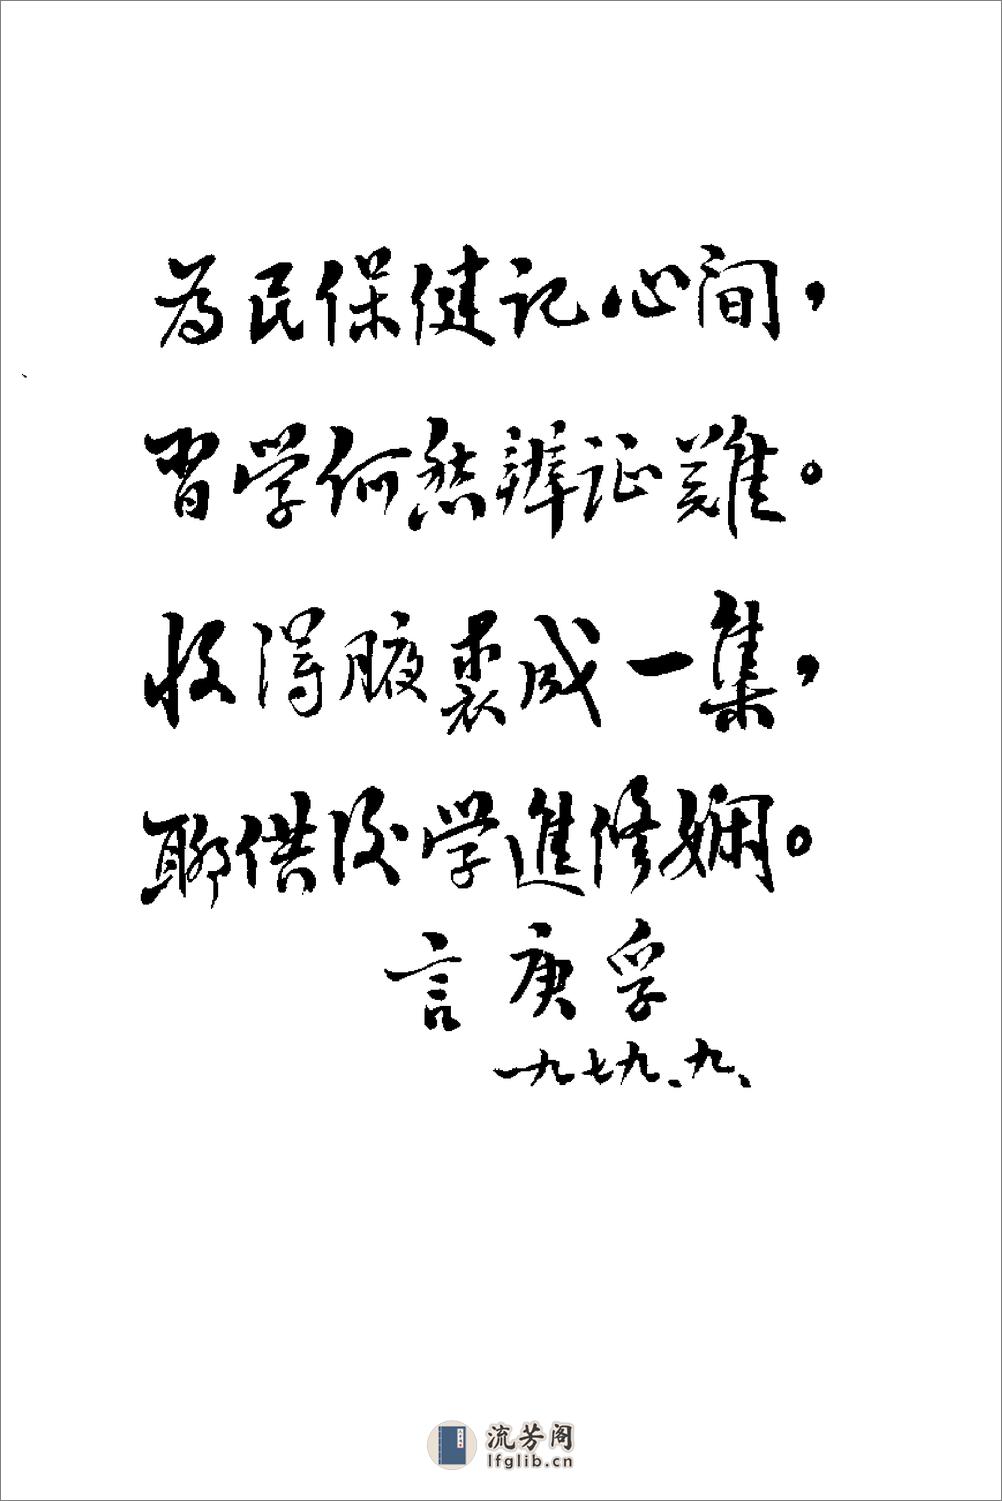 为民保健记心间，
习学何愁辨证难。
收得腋裘成一集，
聊供后学进修娴。
言庚孚
一九七九.九、
流芳阁
lfglib.cn